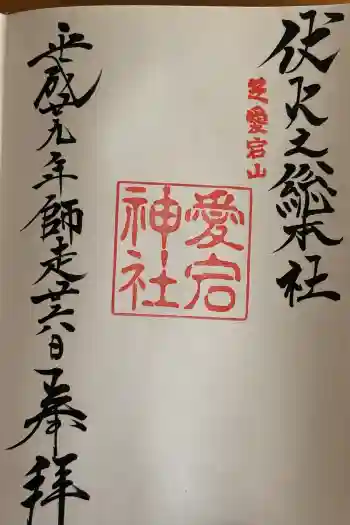 伏火之総本社
芝愛宕山
愛宕
神社
平成廿九年師走廿六日奉拝